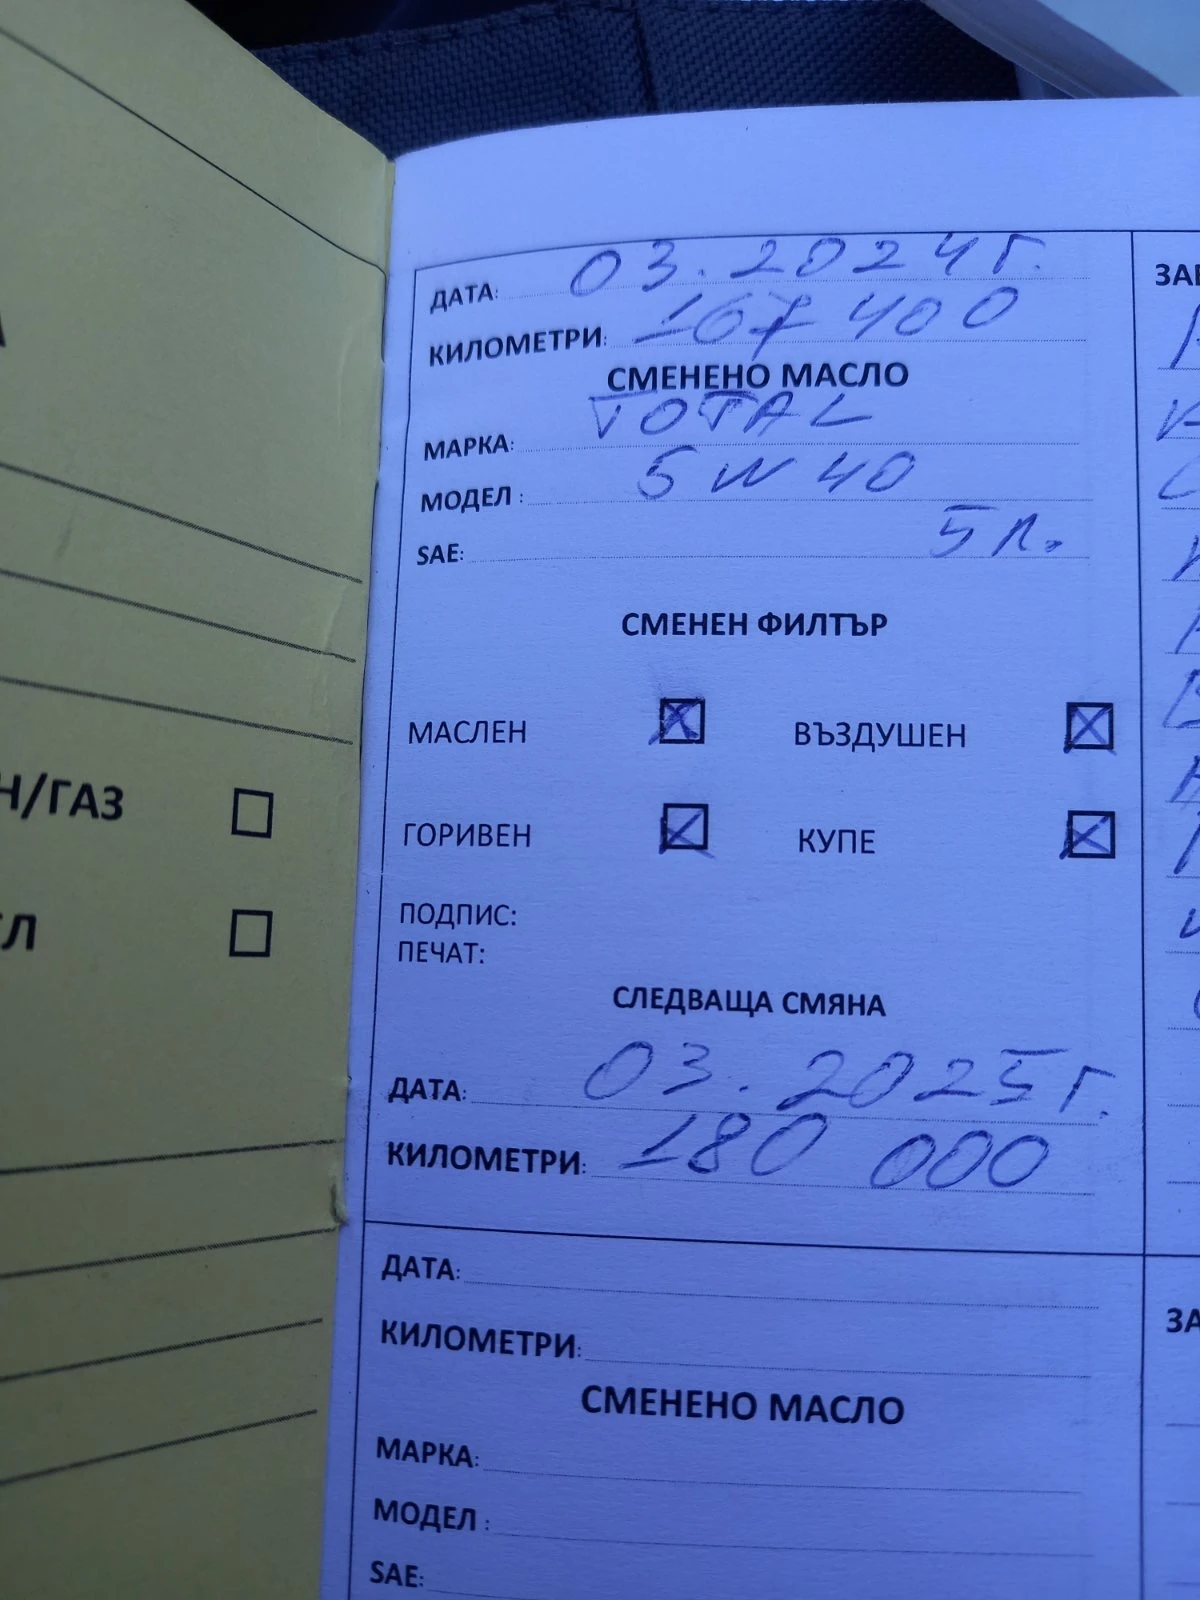 Н/ГАЗ
ДАТА: 03.2024 г.
КИЛОМЕТРИ: 167 400
СМЕНЕНО МАСЛО
МАРКА: TOTAL
МОДЕЛ : 5W40
SAE: 5 л.
СМЕНЕН ФИЛТЪР
МАСЛЕН ВЪЗДУШЕН
ГОРИВЕН КУПЕ
ПОДПИС:
ПЕЧАТ:
СЛЕДВАЩА СМЯНА
ДАТА: 03.2025 г.
КИЛОМЕТРИ: 180 000
ДАТА:
КИЛОМЕТРИ:
СМЕНЕНО МАСЛО
МАРКА:
МОДЕЛ :
SAE: